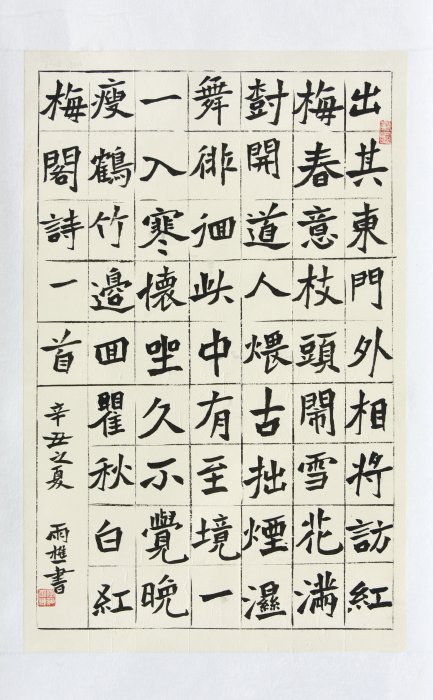 出其東門外相將訪紅
梅春意枝頭鬧雪花滿
樹開道人煨古拙煙濕
舞徘徊此中有至境一
一入寒懷坐久不覺晚
瘦鶴竹邊回瞿秋白紅
梅閣詩一首
辛丑之夏 雨樵書